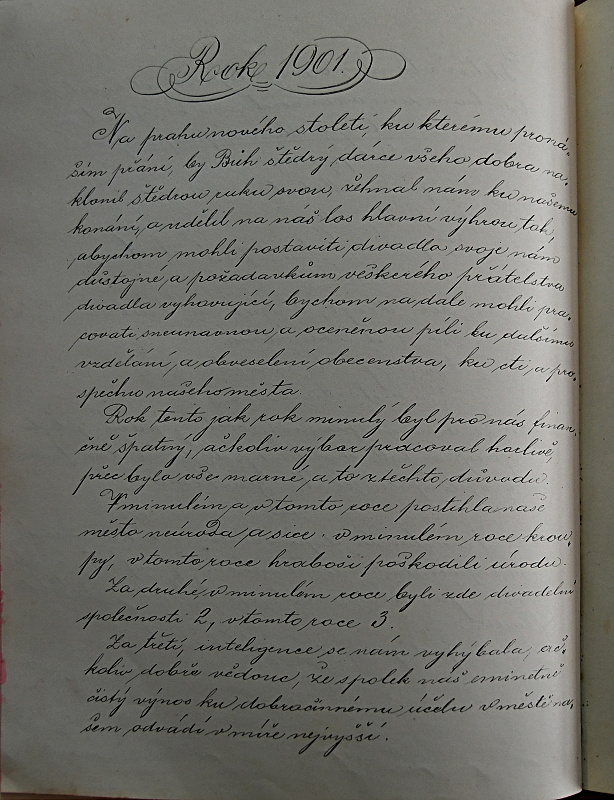 Rok 1901.
Na prahu nového století, ku kterému proná-
ším přání, by Bůh štědrý dárce všeho dobra na-
klonil štědrou ruku svou, žehnal nám ku našemu
konání, a udělil na náš los hlavní výhrou tak,
abychom mohli postaviti divadlo svoje nám
důstojné, a požadavkům veškerého přátelstva
divadla vyhovující, bychom na dále mohli pra-
covati, sneunavnou, a oceněnou pílí ku dalšímu
vzdělání, a obveselení obecenstva, ku cti, a pro-
spěchu našeho města.
Rok tento jak rok minulý byl pro nás finan-
čně špatný, ačkoliv výbor pracoval horlivě,
přec bylo vše marné, a to z těchto důvodu.
V minulém a v tomto roce postihla naše
město neúroda a sice: v minulém roce krou-
py, v tomto roce hraboši poškodili úrodu.
Za druhé, v minulém roce byli zde divadelní
společnosti 2, v tomto roce 3.
Za třetí, inteligence se nám vyhýbala, ač-
koliv dobře vědouc, že spolek náš eminetně
čistý výnos ku dobročinnému účelu v městě na-
šem odvádí v míře nejvyšší.